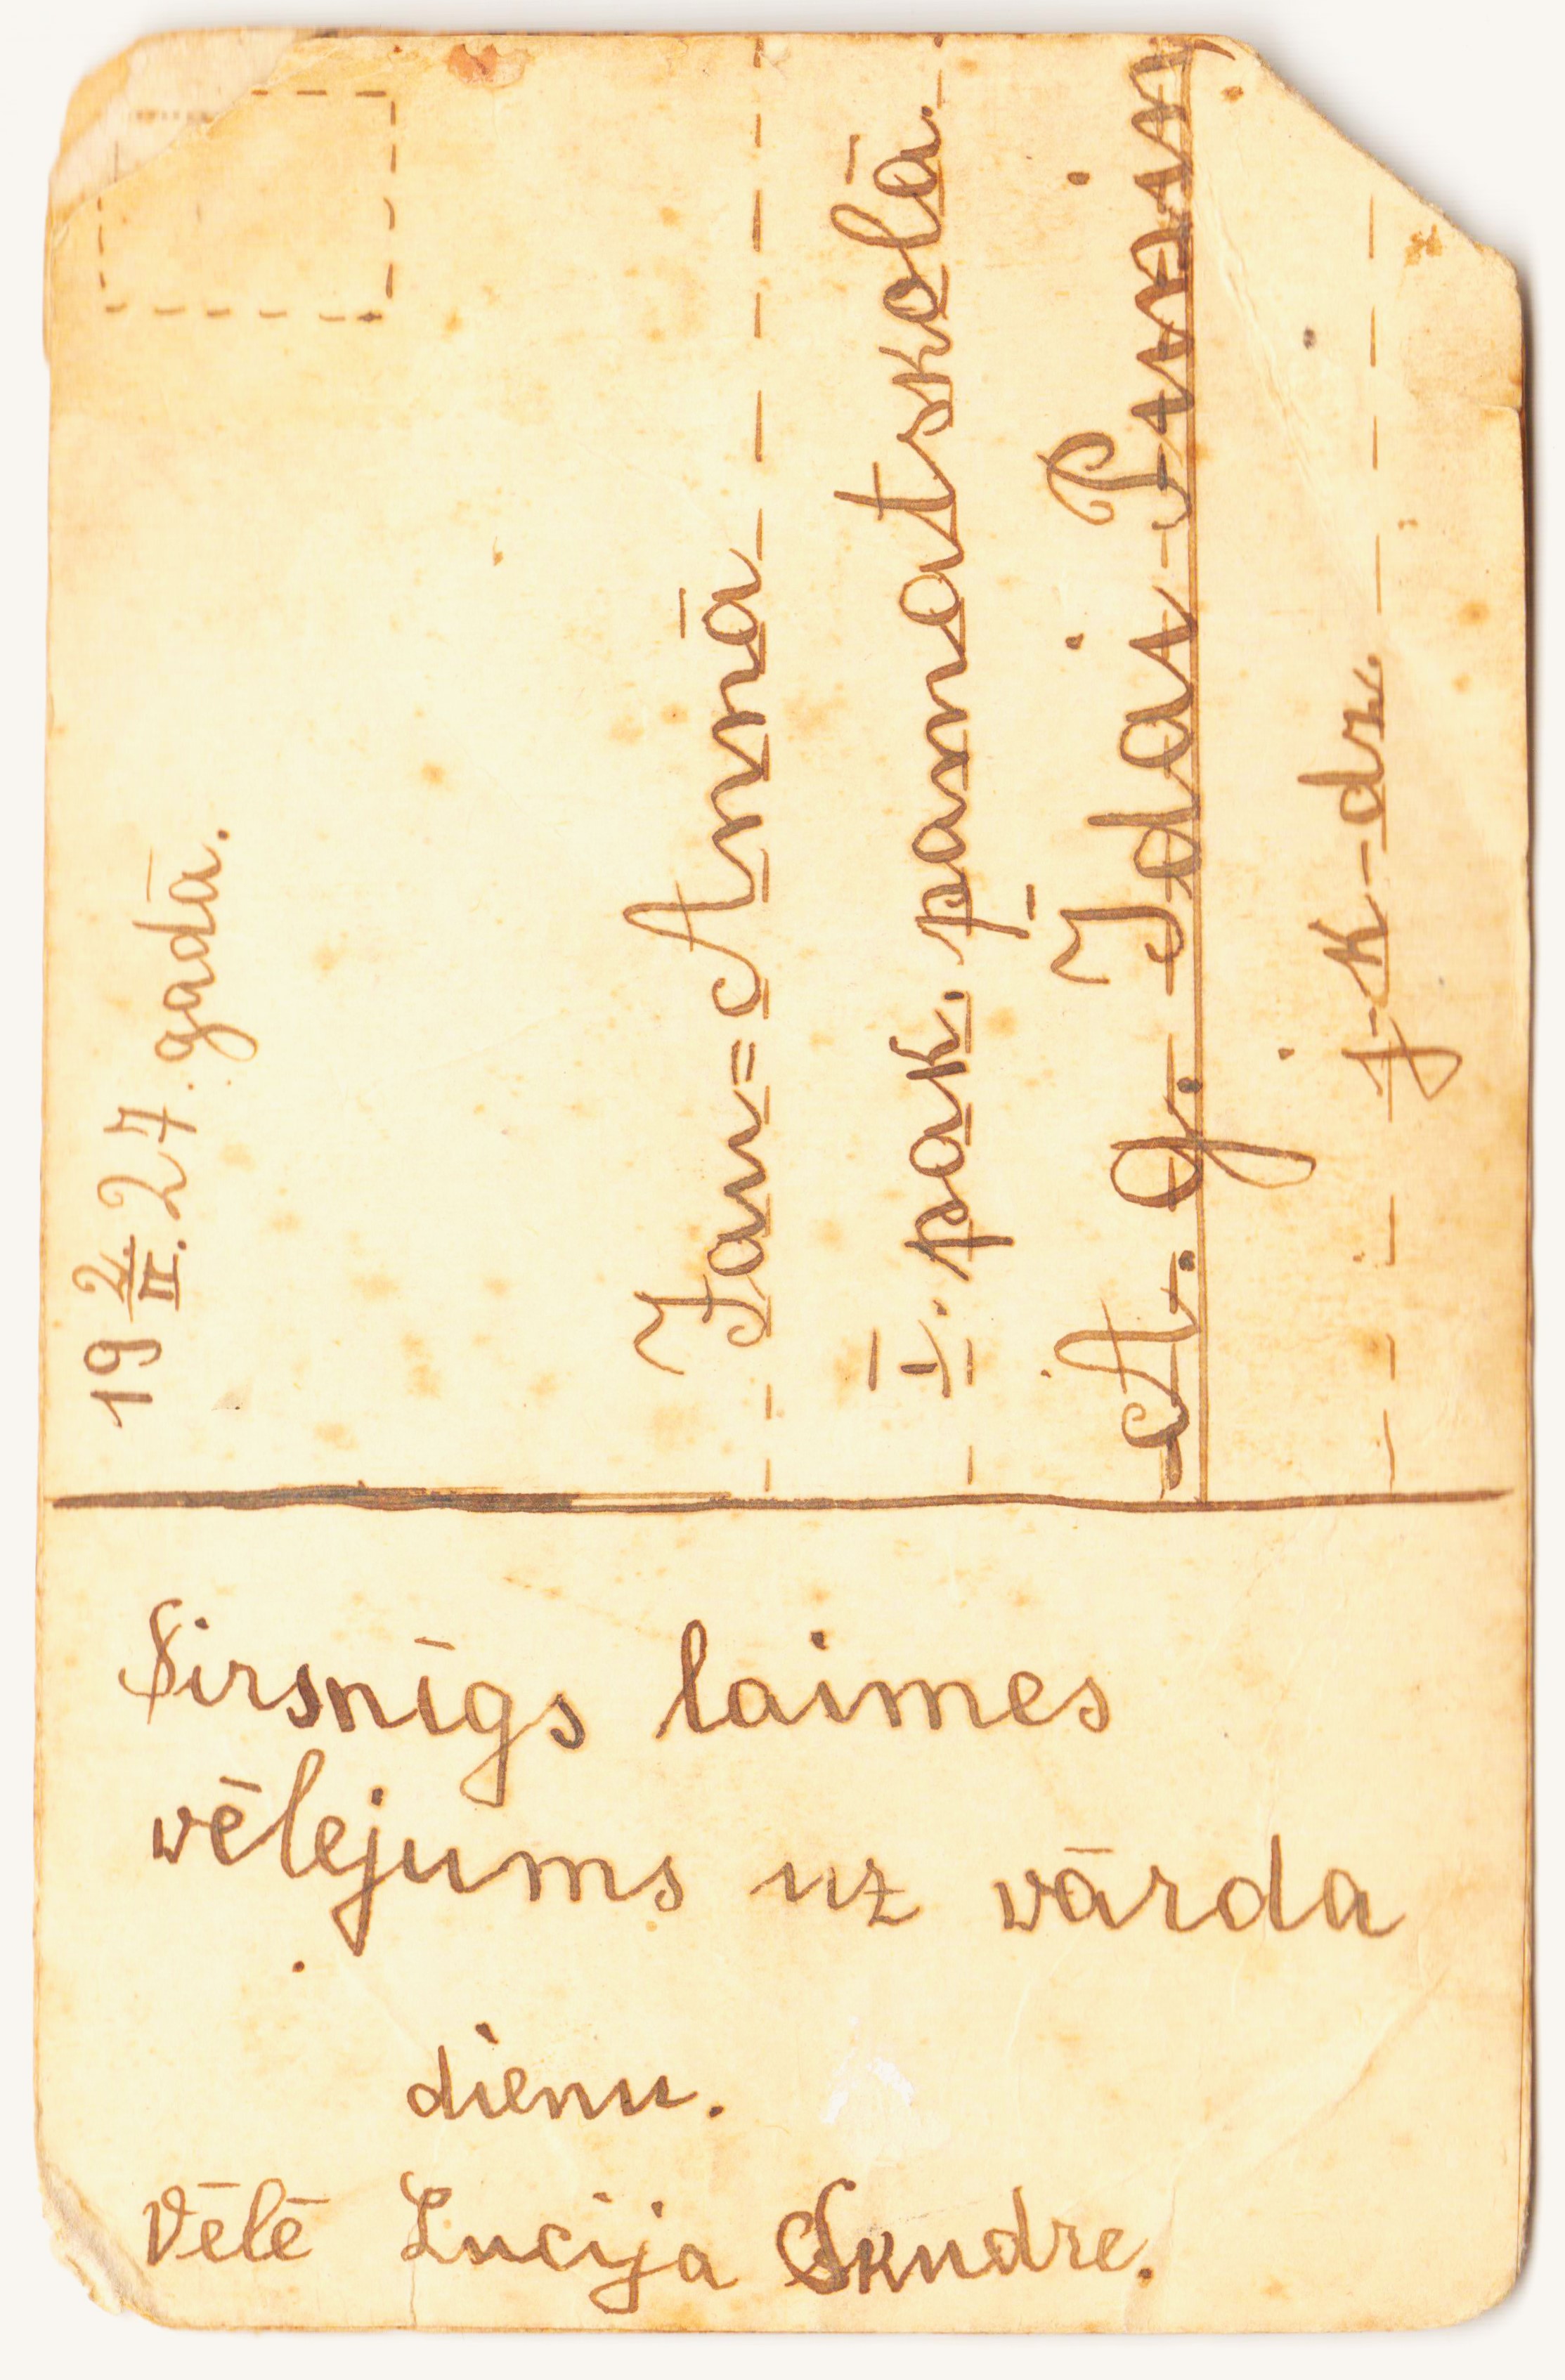 19 2/II. 27. gadā.
Jaun=Annā
I. pak. pamatskolā.
A. g. Idai
j-k-dz.
Sirsnīgs laimes
vēlejums uz vārda
dienu.
Vēlē Lucija Skudre.